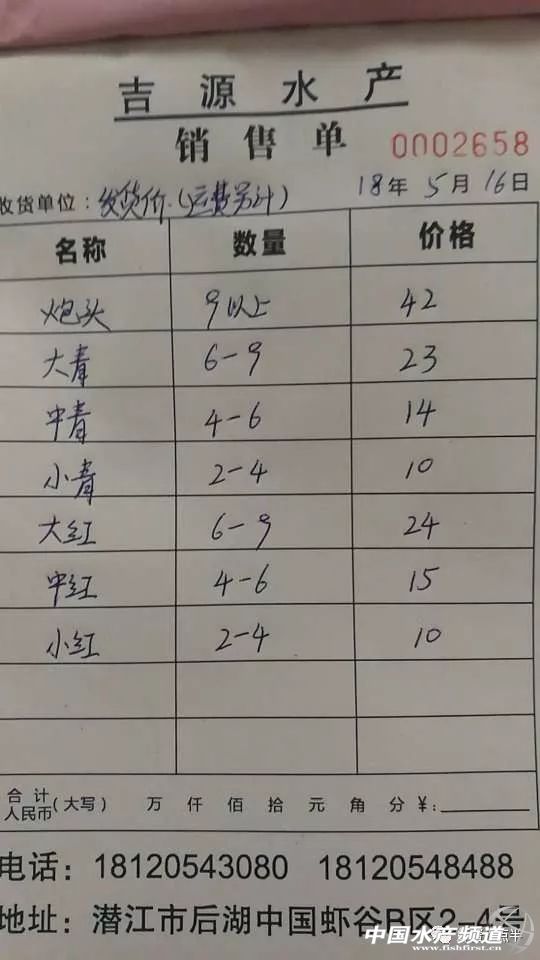 吉源水产
销售单 0002658
收货单位：发货价(运费另计) 18年5月16日
名称 数量 价格
炮头 9以上 42
大青 6-9 23
中青 4-6 14
小青 2-4 10
大红 6-9 24
中红 4-6 15
小红 2-4 10
合计
人民币(大写) 万仟佰拾元角分¥:
电话：18120543080 18120548488
地址：潜江市后湖中国虾谷B区2-4号
中国水产频道
www.fishfirst.cn